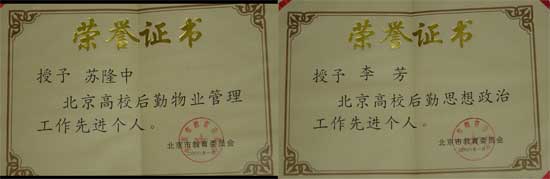 荣誉证书
授予 苏隆中
北京高校后勤物业管理
工作先进个人。
北京市教育委员会
荣誉证书
授予 李 芳
北京高校后勤思想政治
工作先进个人。
北京市教育委员会